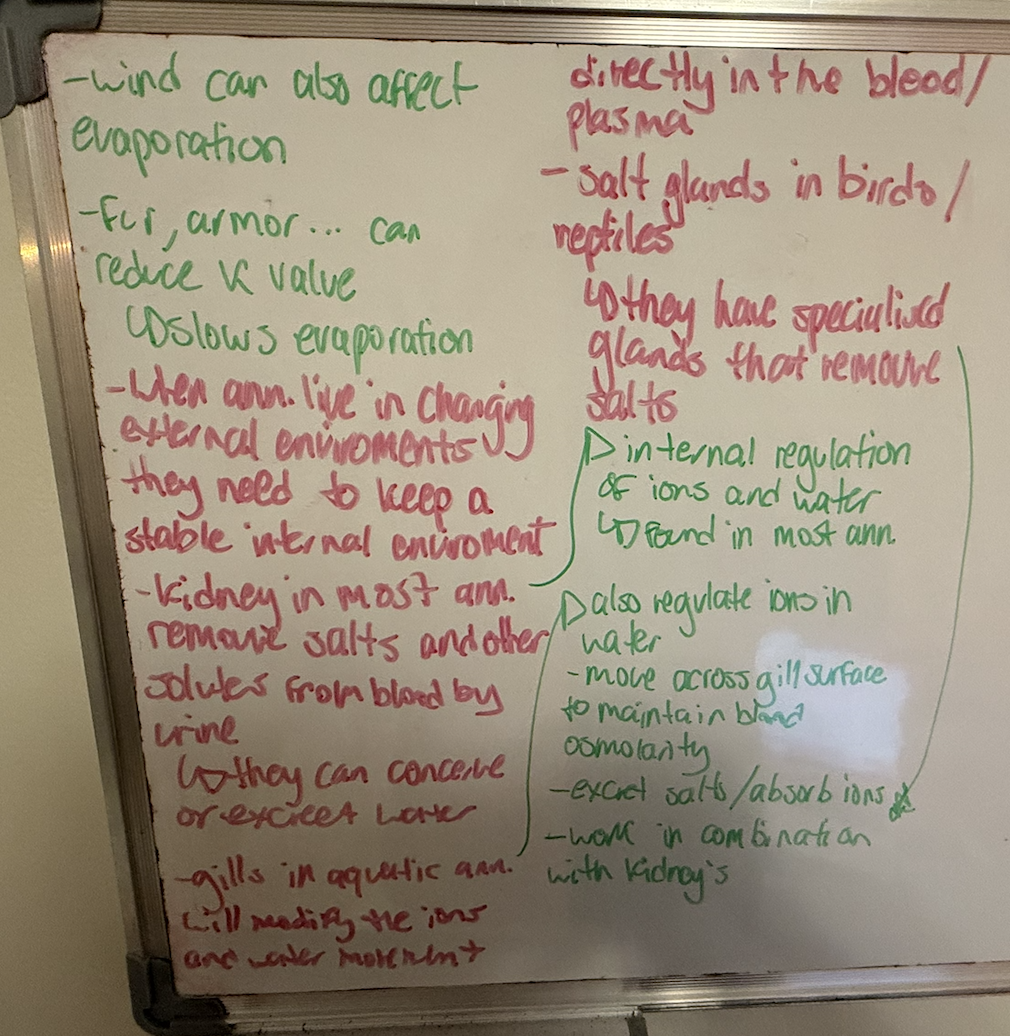 -wind can also affect
evaporation
-fur, armor... can
reduce K value
↳slows evaporation
-when ann. live in changing
external enviroments
they need to keep a
stable internal enviroment
-kidney in most ann.
remove salts and other
solutes from blood by
urine
↳they can concerve
or excreet water
-gills in aquatic ann.
will modify the ions
and water movement
directly in the blood/
plasma
-salt glands in birds/
reptiles
↳they have specialised
glands that remove
salts
internal regulation
of ions and water
↳found in most ann.
also regulate ions in
water
-move across gill surface
to maintain blood
osmolarity
-excret salts/absorb ions
-work in combination
with kidney's